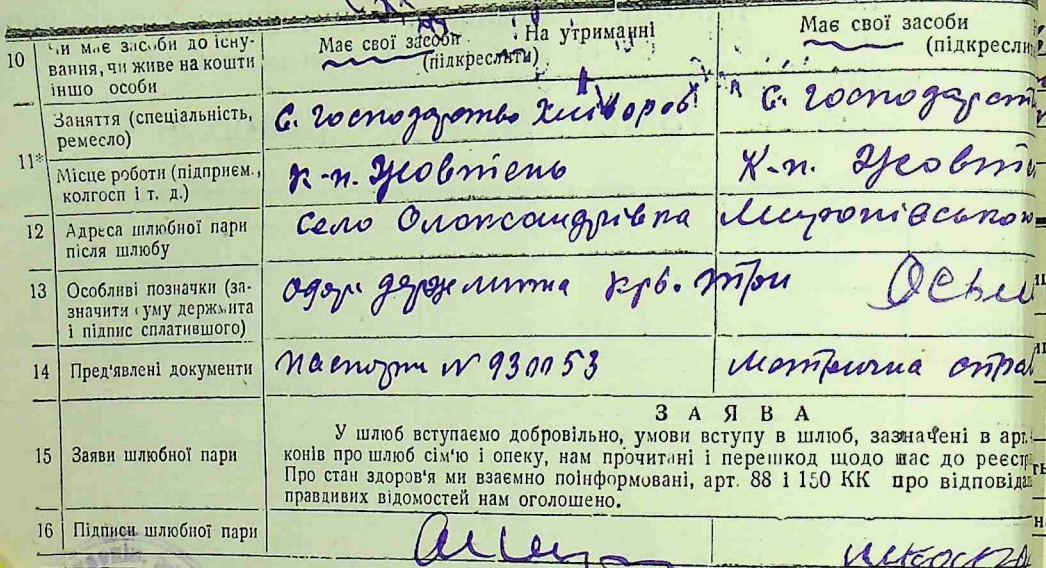 10 Чи має засоби до існу-
вання, чи живе на кошти
іншо особи
Має свої засоби На утриманні
(підкреслити)
Має свої засоби
(підкресли
11* Заняття (спеціальність,
ремесло)
С. господарство Хлівороб
С. господарст
Місце роботи (підприєм.,
колгосп і т. д.)
К-п. Жовтень
К-п. Жовте
12 Адреса шлюбної пари
після шлюбу
Село Олександрівка
13 Особливі позначки (за-
значити суму держмита
і підпис сплатившого)
держмита крб. три
14 Пред'явлені документи
Паспорт №
Метрична
15 Заяви шлюбної пари
ЗАЯВА
У шлюб вступаємо добровільно, умови вступу в шлюб, зазначені в арт.
конів про шлюб сім'ю і опеку, нам прочитані і перешкод щодо нас до реєстр
Про стан здоров'я ми взаємно поінформовані, арт. 88 і 150 КК про відповіда
правдивих відомостей нам оголошено.
16 Підписи шлюбної пари